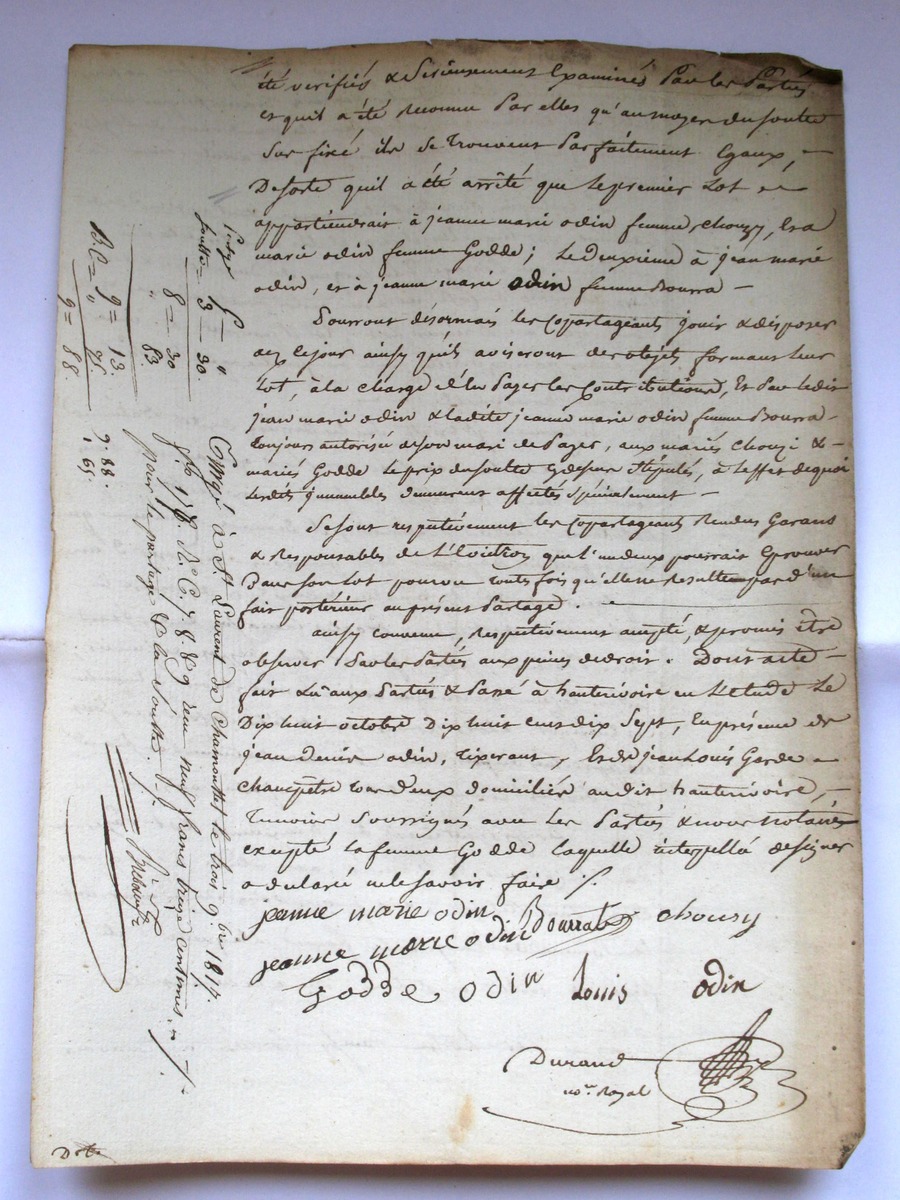 été verifiés & serieusement Examinés Par les Parties
et quil a été reconnu Par elles qu'au moyen du soulte
Sus fixé ils se trouvent Parfaitement Egaux, —
De sorte quil a été arrêté que le premier Lot —
appartiendrait à jeanne marie odin femme chouzy, Et a
marie odin femme Godde; Le Deuxieme à jean marie
odin, et à jeanne marie odin femme Bourra —
Pourront désormais les Copartageants jouir & disposer
dez cejour ainsy quils aviseront des objets formant leur
Lot, à la charge d'En Payer les Contributions, Et Par ledit
jean marie odin & ladite jeanne marie odin femme Bourra —
toujours autorisée de son mari de Payer, aux mariés Chouzi & —
mariés Godde Le prix du soulte cy dessus stipulés, à l'effet de quoi
lesdits immeubles demeurent affectés spécialement —
Se sont respectivement les Copartageants Rendus Garans
& Responsables de L'Eviction que l'un deux pourrait Eprouver
Dans son Lot pourvu toutefois qu'elle ne resulte pas d'un
fait postérieur au présent Partage. —
ainsy convenu, respectivement accepté, & promis être
observer Par les Parties aux peines de droit. Dont acte —
fait & Lu aux Parties & Passé à hauterivoire en L'etude Le
Dix huit octobre Dix huit cens dix Sept, En présence de
jean denis odin, tixerant, Et de jean Louis Garde —
champêtre tous deux domiciliés audit hauterivoire, —
Temoins Soussignés avec les Parties & nous Notaire
excepté la femme Godde laquelle interpellée de signer
a déclaré ne le savoir faire ./.
jeanne marie odin Bourrat chousy
jeanne marie odin
Godde odin Louis odin
Durand
no.re Royal
Enregé à St Laurent de Chamousset le trois 9.bre 1817.
f.o 178 R.o C. 7. 8 & 9 reçu neuf francs treize centimes,
pour le partage & la soulte ./.
soulte 3 — 30.
8 — 30
" 83.
B.C = 9 = 13
" 75.
9 = 88.
9. 88.
1. 65.